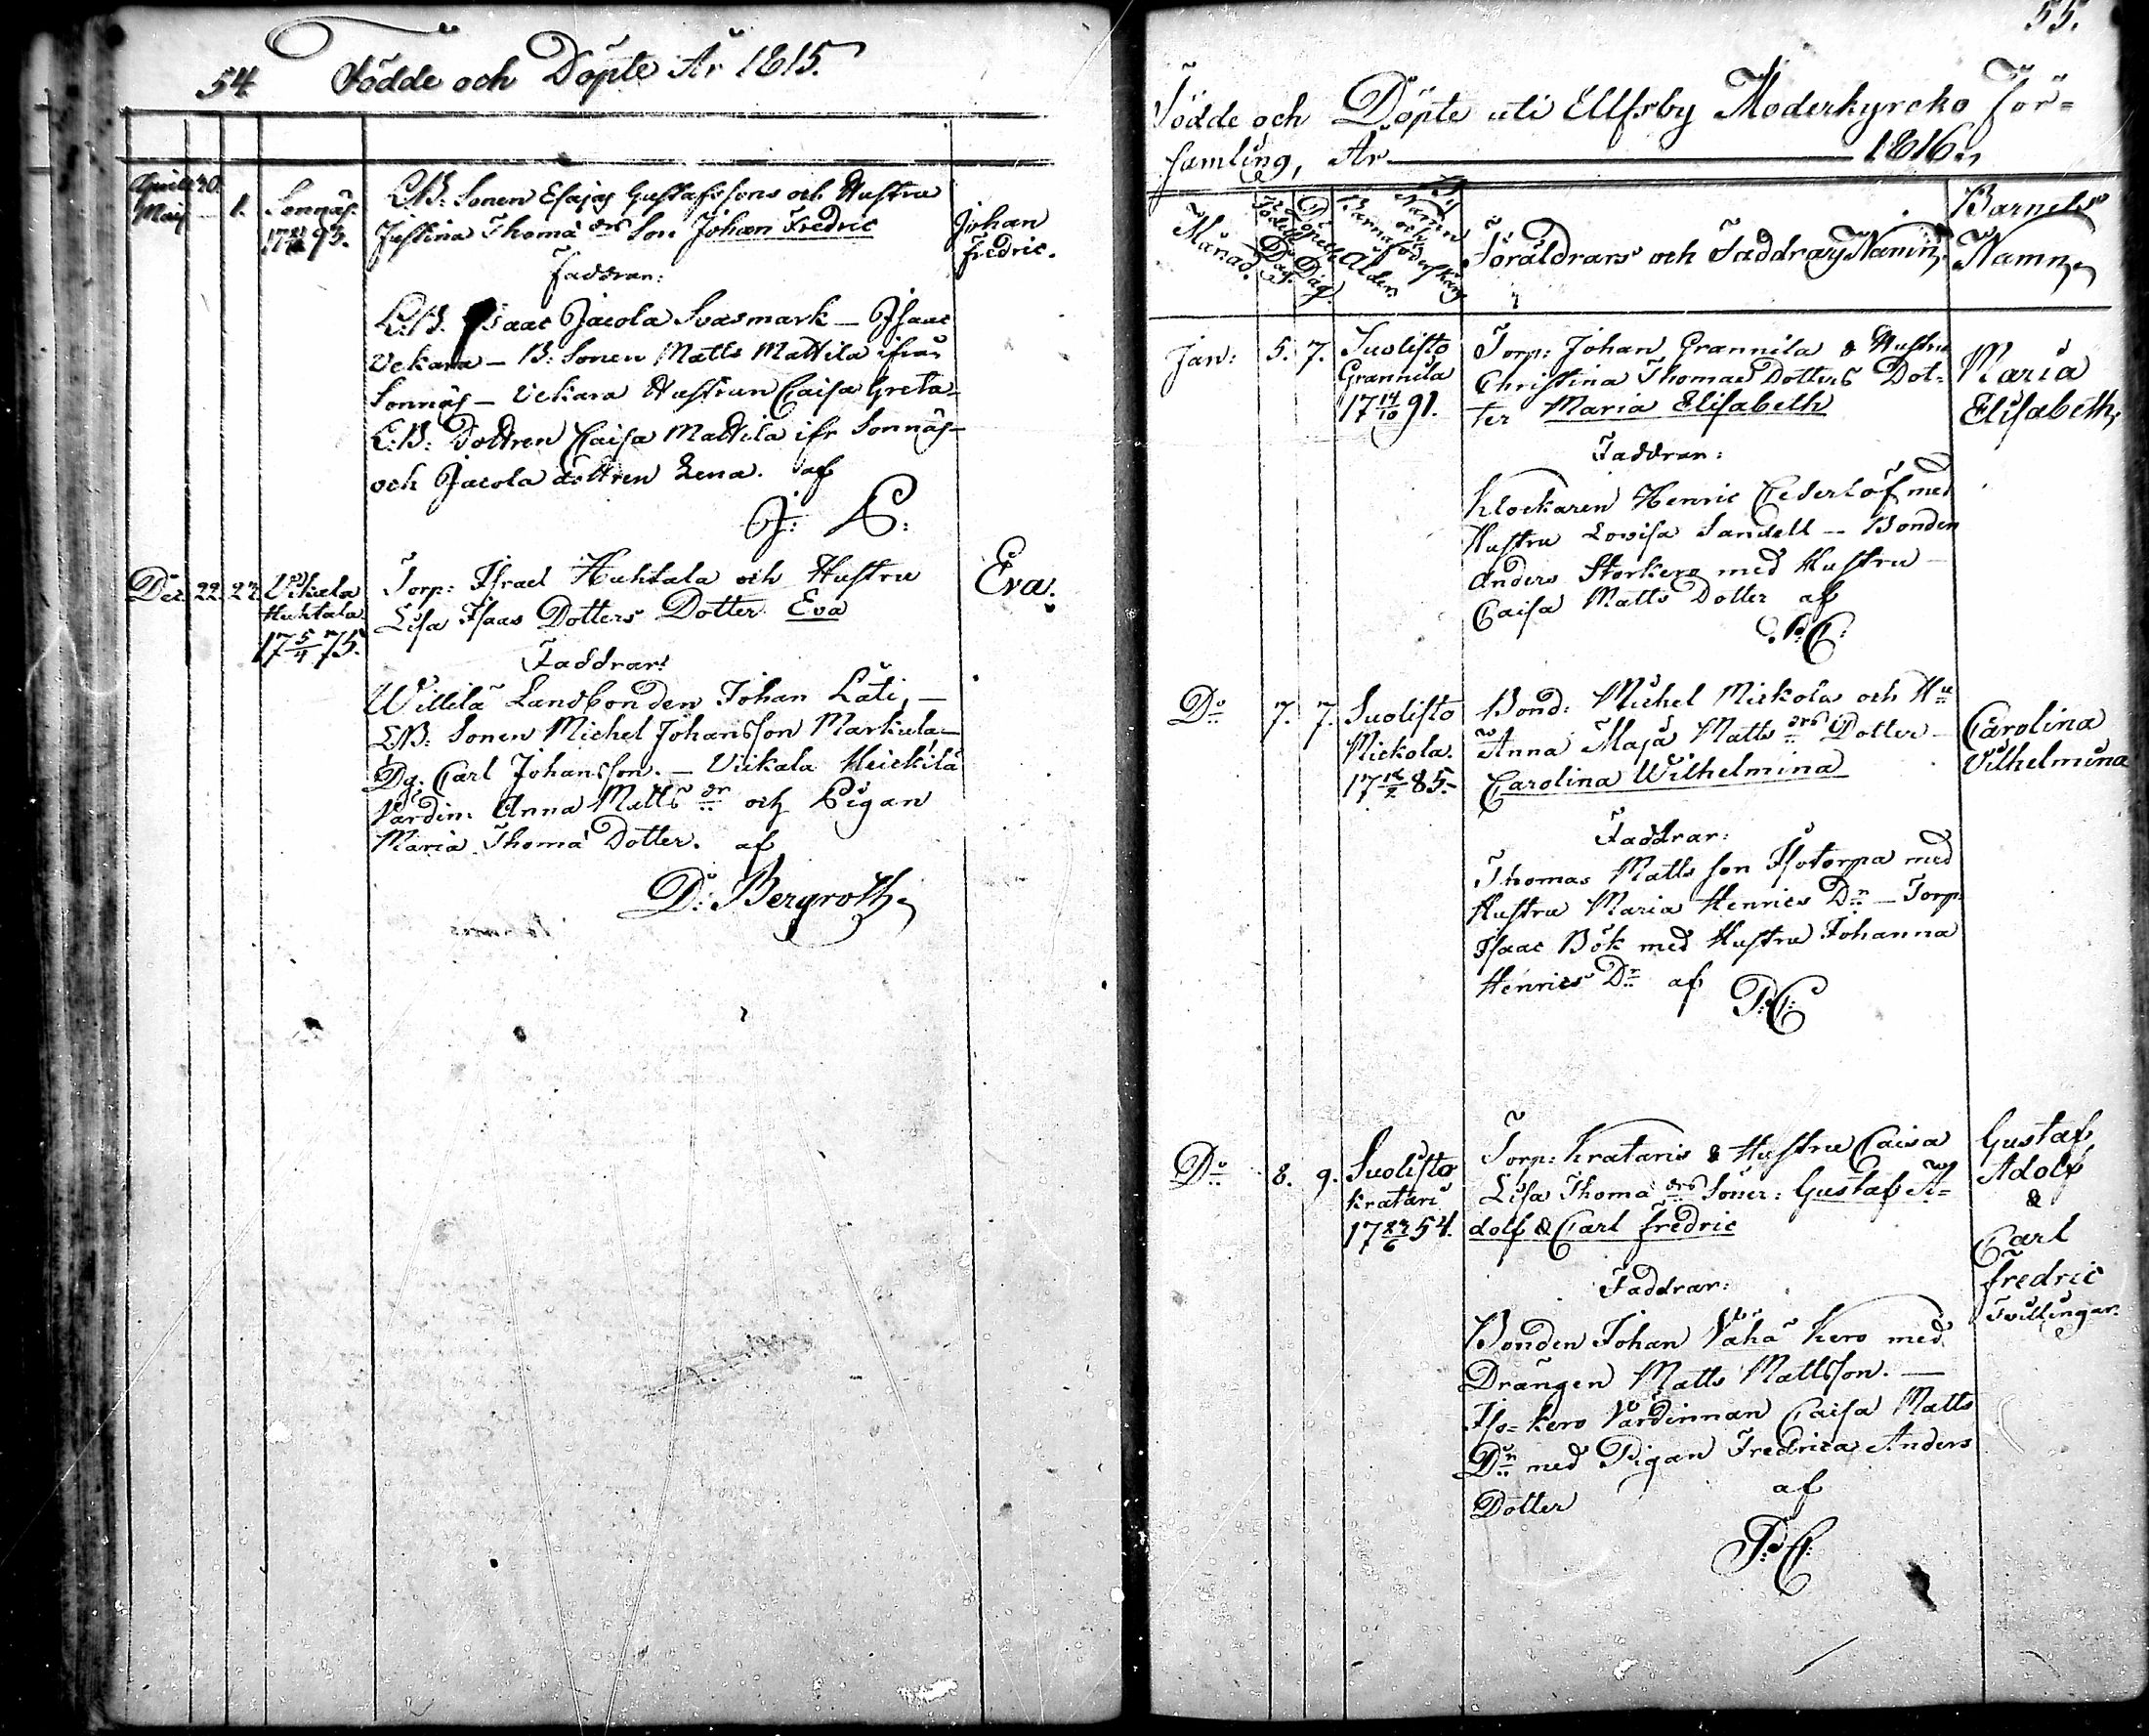 54. Födde och Döpte År 1815.
Aprill 30.
Maij 1. Sonnäs. 17 95. LB: Sonen Esajas Gustafssons och Hustru Johan
Justina Thomæ drs Son Johan Fredric Fredric.
Faddrar:
L:B. Isaac Jacola Svasmark – Isaac
Uckara – B: Sonen Matts Mattila ifrån
Sonnäs – Uckara Hustrun Caisa Greta –
L:B: Dottren Caisa Mattila ifr Sonnäs –
och Jacola dottren Lena. af
Dec. 22. 27. Vikala Torp: Israel Huhtala och Hustru Eva.
Huhtala Lisa Isaas Dotters Dotter Eva
17 5/4 75.
Faddrar:
Willilä Landbonden Johan Läti, –
LB: Sonen Michel Johansson Markula –
Dg: Carl Johansson. – Vikala Heickilä
Värdin: Anna Matts dr och Pigan
Maria Thomæ Dotter. af
D: Bergroth
55.
Födde och Döpte uti Ulfsby Moderkyrcko För=
samling, År 1816.
Månad. Födelse Dag. Döpelse Dag. Namn och Barnaföderskans Ålder. Föräldrars och Faddrars Namn. Barnets
Namn
Jan: 5. 7. Suolisto Torp: Johan Grannila & Hustru Maria
Grannila Christina Thomæ Dotters Dot= Elisabeth
17 14/10 91. ter Maria Elisabeth
Faddrar:
Klockaren Henric Cederlöf med
Hustru Lovisa Sandell – Bonden
Anders Storkero med Hustru –
Caisa Matts Dotter af
P:C:
Do 7. 7. Suolisto Bond: Michel Mickola och Hu Carolina
Mickola. Anna Maja Matts drs Dotter – Vilhelmina
17 12/2 85. Carolina Wilhelmina
Faddrar:
Thomas Matts son Isotorpa med
Hustru Maria Henrics Dr – Torp.
Isaac Bök med Hustru Johanna
Henrics Dr af
P:C:
Do 8. 9. Suolisto Torp: Krataris & Hustru Caisa Gustaf
Kratari Lisa Thomæ drs Söner: Gustaf A= Adolf
17 23/6 54. dolf & Carl Fredric &
Carl
Fredric
Tvillingar.
Faddrar:
Bonden Johan Vähä Kero med
Drängen Matts Mattsson. –
Iso=kero Värdinnan Caisa Matts
Dr med Pigan Fredrica Anders
Dotter af
P:C: